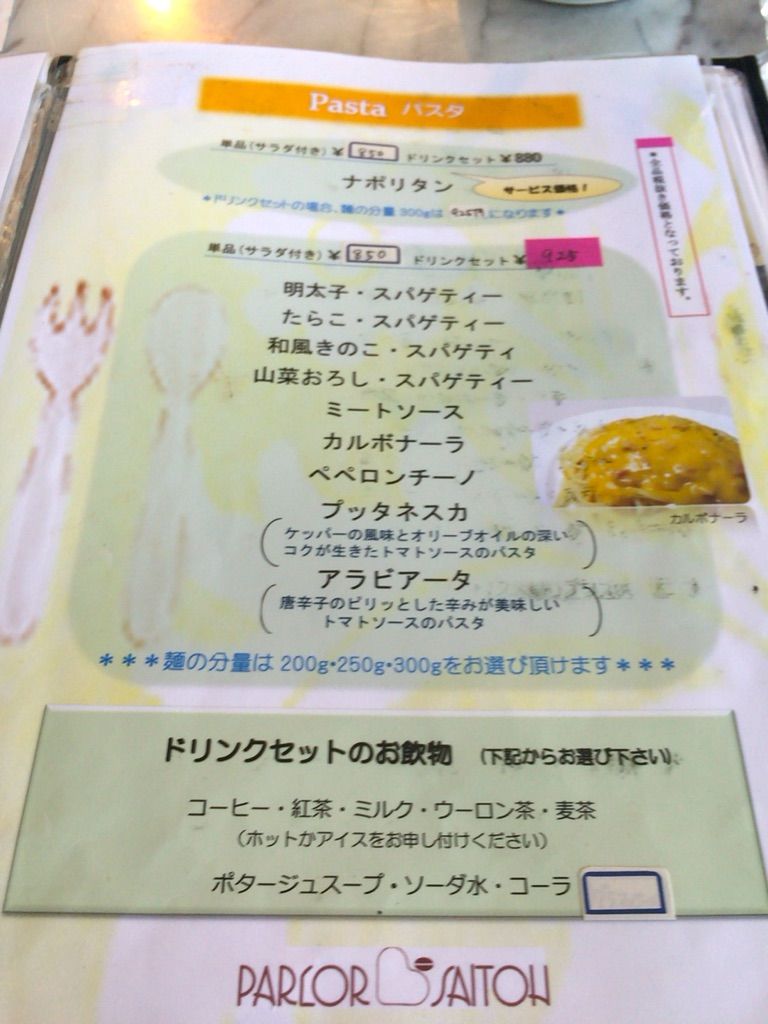 Pasta パスタ
単品(サラダ付き)¥ 850 ドリンクセット¥880
ナポリタン サービス価格！
*ドリンクセットの場合、麺の分量300gは 925円になります*
*全品税抜き価格となっております。
単品(サラダ付き)¥ 850 ドリンクセット¥ 925
明太子・スパゲティー
たらこ・スパゲティー
和風きのこ・スパゲティ
山菜おろし・スパゲティー
ミートソース
カルボナーラ
ペペロンチーノ
カルボナーラ
プッタネスカ
(ケッパーの風味とオリーブオイルの深い
コクが生きたトマトソースのパスタ)
アラビアータ
(唐辛子のピリッとした辛みが美味しい
トマトソースのパスタ)
＊＊＊麺の分量は 200g・250g・300gをお選び頂けます＊＊＊
ドリンクセットのお飲物 (下記からお選び下さい)
コーヒー・紅茶・ミルク・ウーロン茶・麦茶
(ホットかアイスをお申し付けください)
ポタージュスープ・ソーダ水・コーラ
PARLOR SAITOH